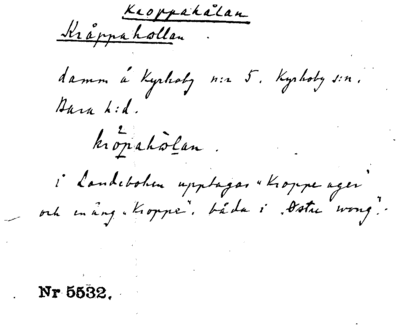 Kroppahålan
Kråppahollan.
damm å Kyrkoby n:r 5. Kyrkoby s:n.
Bara h:d.
krǫ̀pahòlan.
i Landebohen upptagas "Kroppe ager"
och en äng "Kroppe". båda i "Østre wong".
Nr 5532.